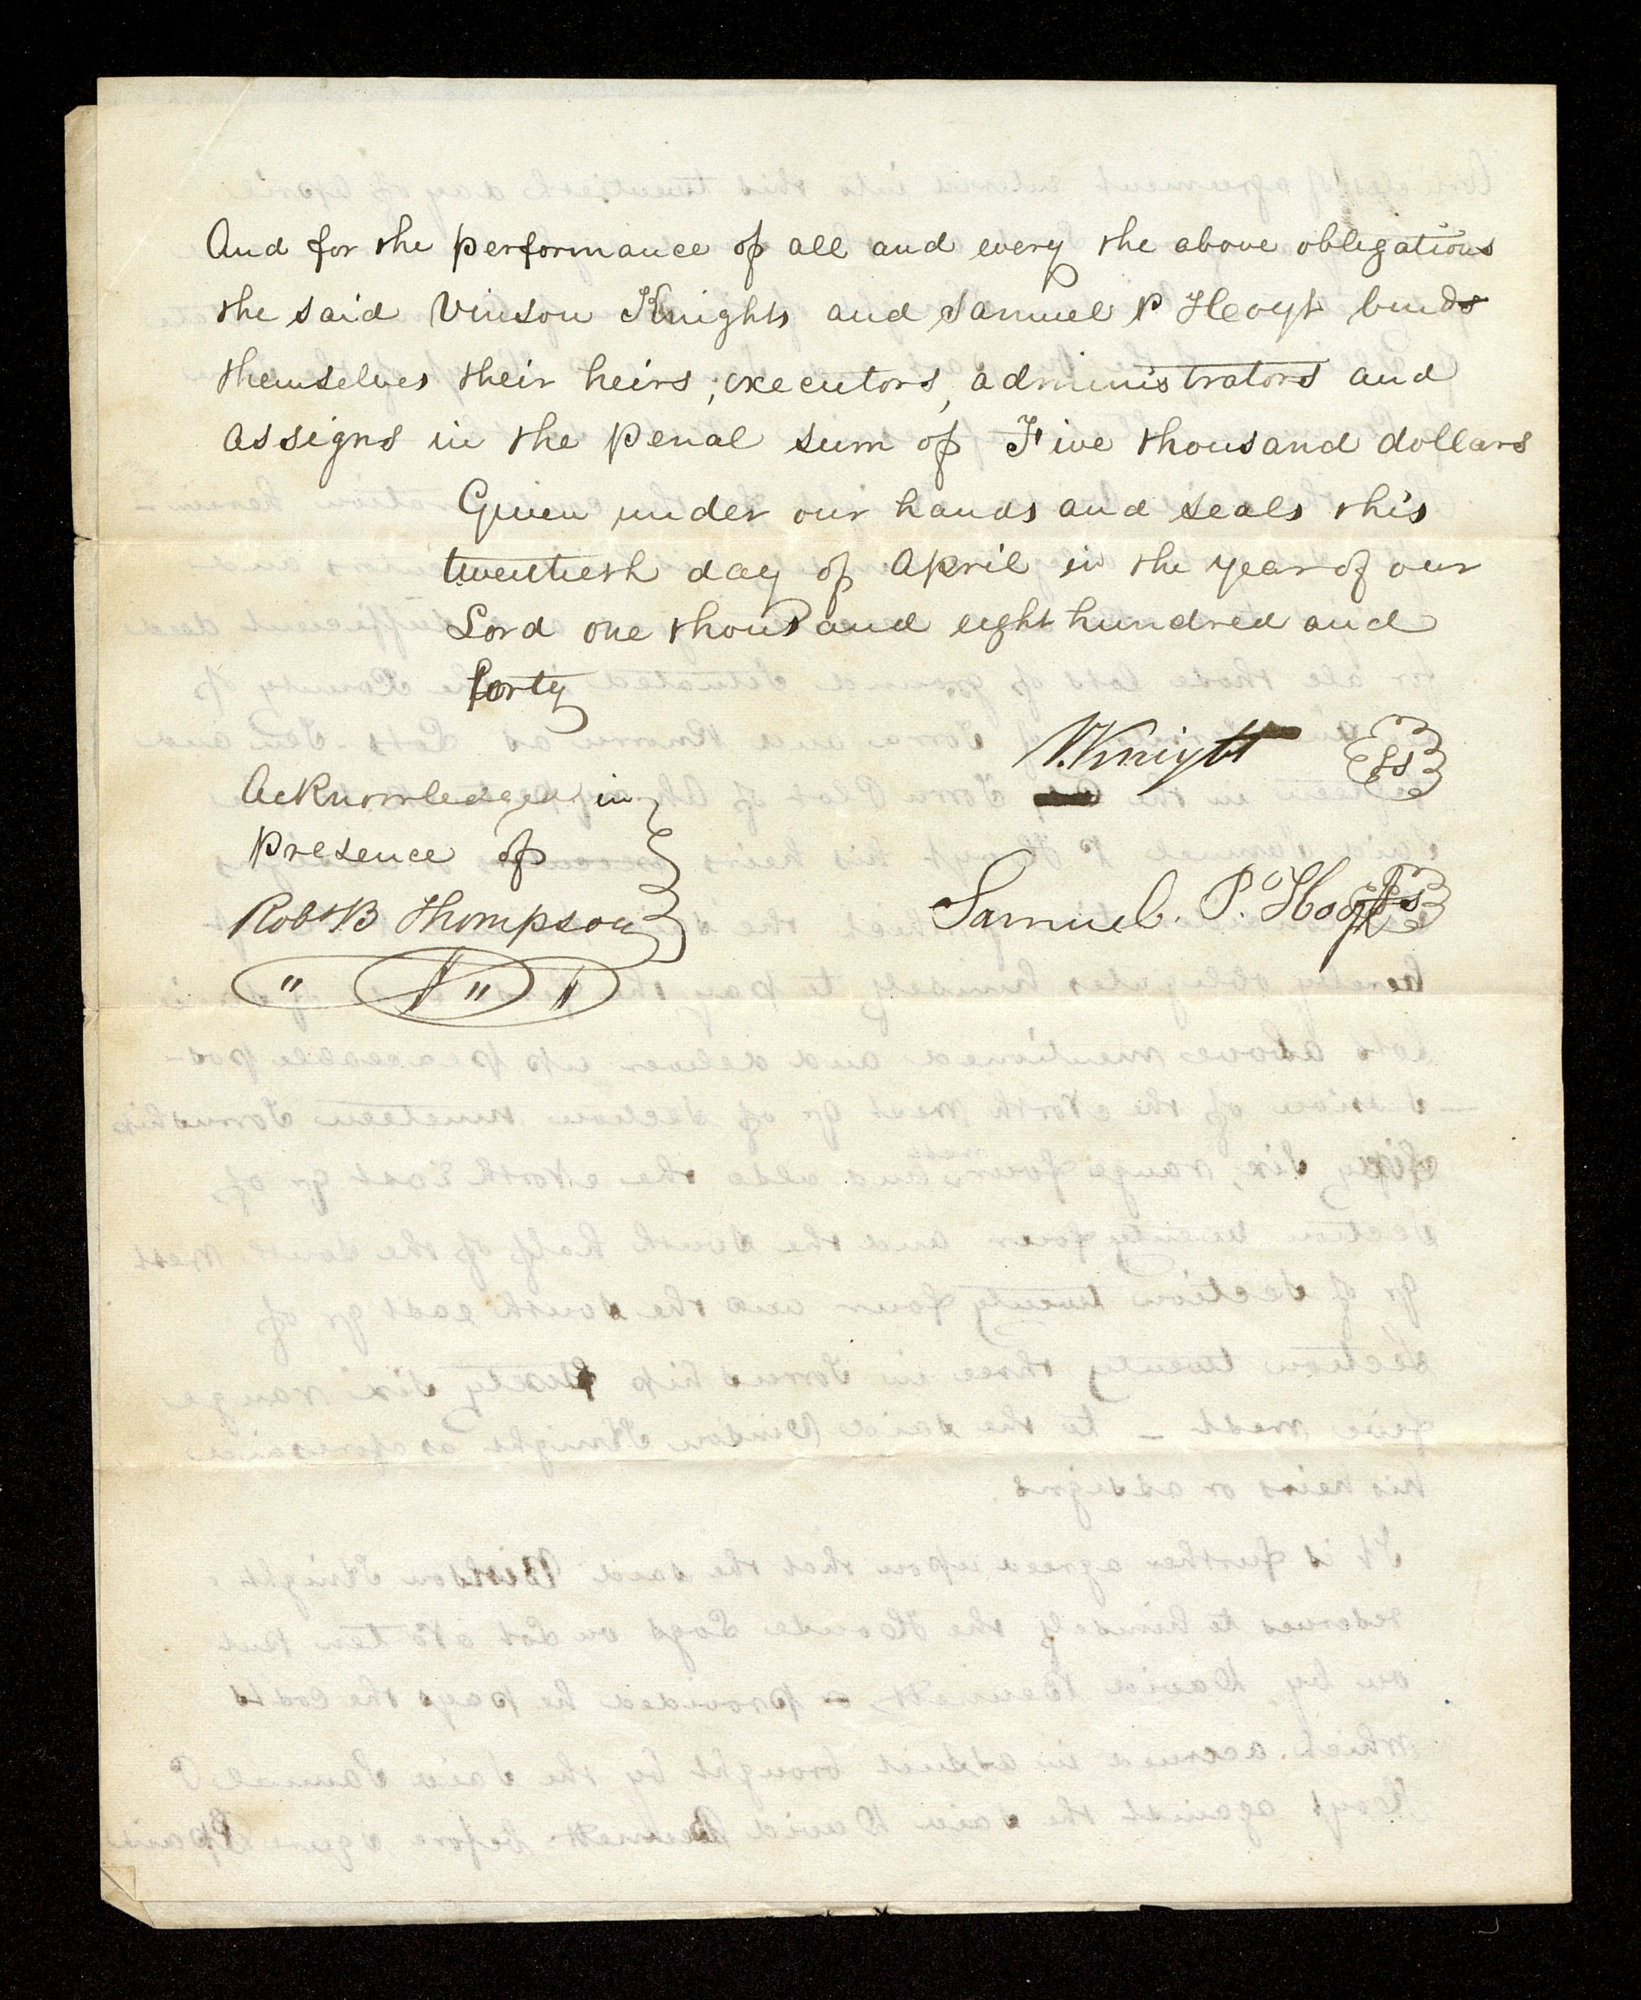 And for the performance of all and every the above obligations
the said Vinson Knights and Samuel P Hoyt binds
themselves their heirs, executors, administrators and
assigns in the penal sum of Five thousand dollars
Given under our hands and seals this
twentieth day of April in the year of our
Lord one thousand eight hundred and
forty
V. Knight LS
Acknowledged in
presence of
Robt B Thompson
Samuel. P. Hoyt LS